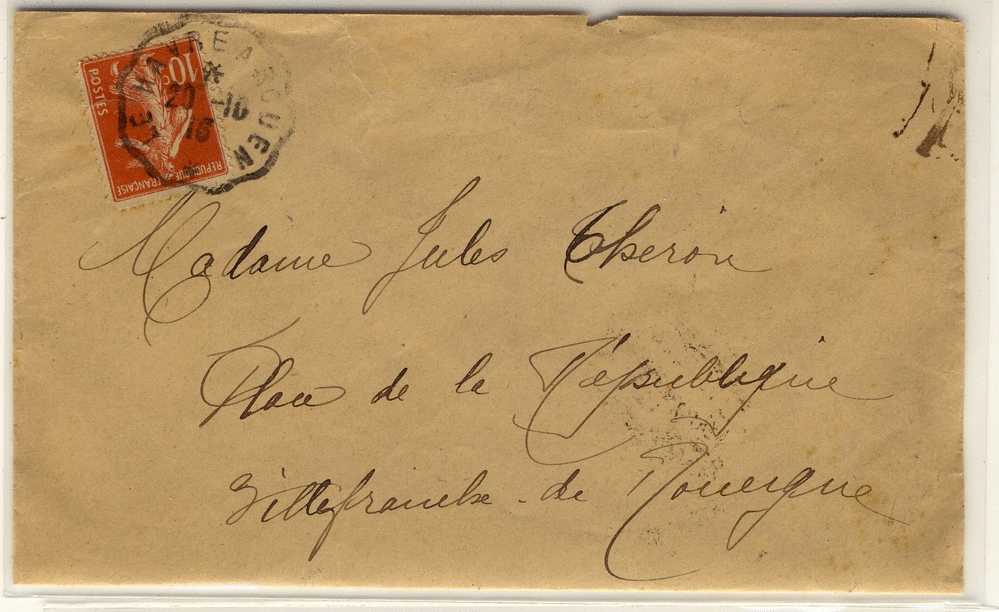 10c
POSTES
REPUBLIQUE FRANÇAISE
LE HAVRE A ROUEN
20-10
16
Madame Jules Theron
Place de la République
Villefranche-de Rouergue